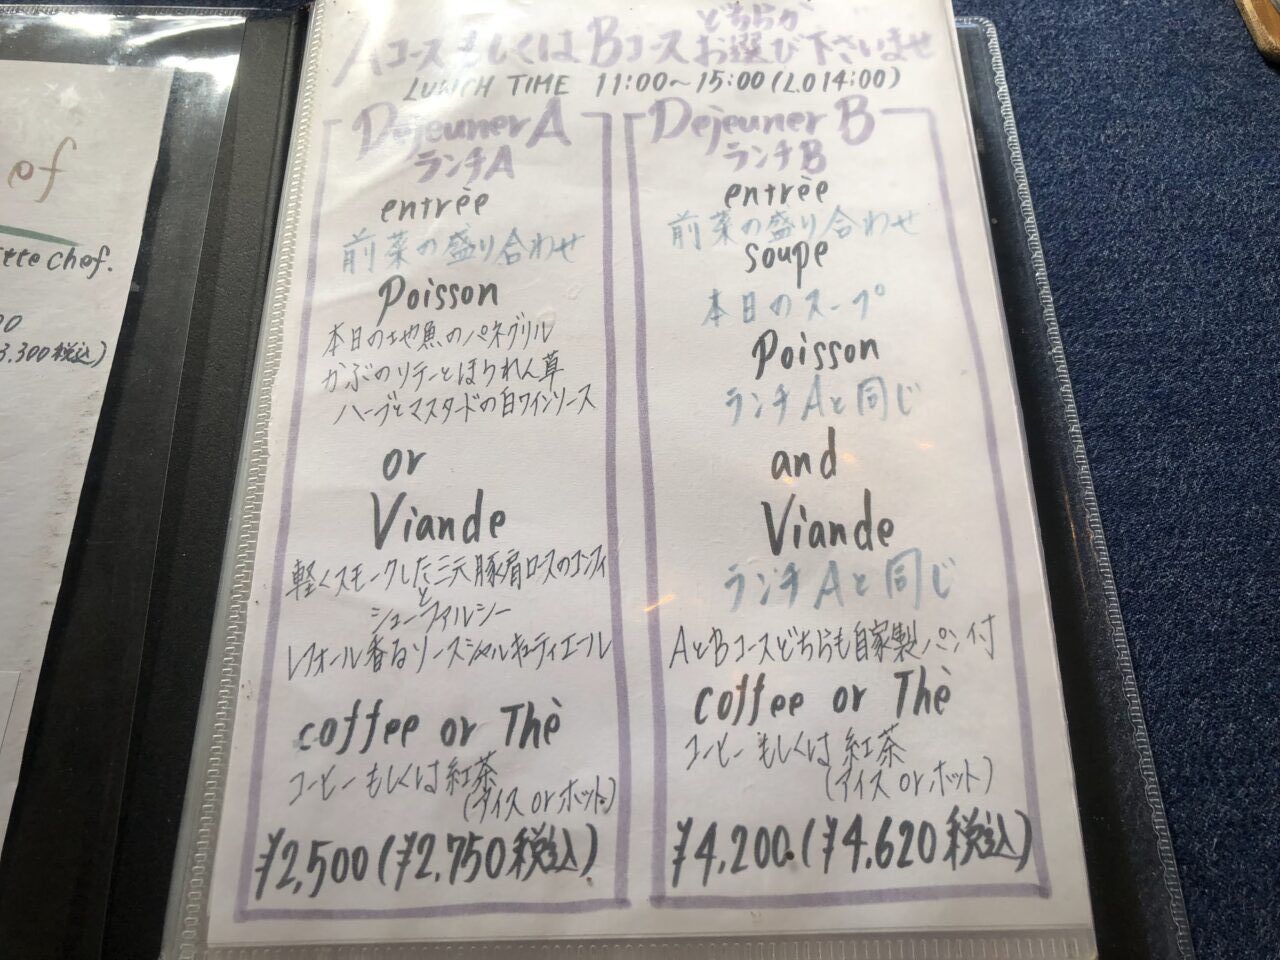 of
ette chef.
00
3,300税込)
Aコースもしくは Bコース どちらか
お選び下さいませ
LUNCH TIME 11:00～15:00 (L.O 14:00)
Dejeuner A
ランチA
entrèe
前菜の盛り合わせ
Poisson
本日の地魚のパネグリル
かぶのソテーとほうれん草
ハーブとマスタードの白ワインソース
or
Viande
軽くスモークした三元豚肩ロースのコンフィ
と
シューファルシー
レフォール香るソースシャルキュティエール
coffee or Thè
コーヒーもしくは紅茶
(アイス or ホット)
¥2,500 (¥2,750税込)
Dejeuner B
ランチB
entrèe
前菜の盛り合わせ
soupe
本日のスープ
Poisson
ランチAと同じ
and
Viande
ランチAと同じ
AとBコースどちらも自家製パン付
coffee or Thè
コーヒーもしくは紅茶
(アイス or ホット)
¥4,200. (¥4,620税込)